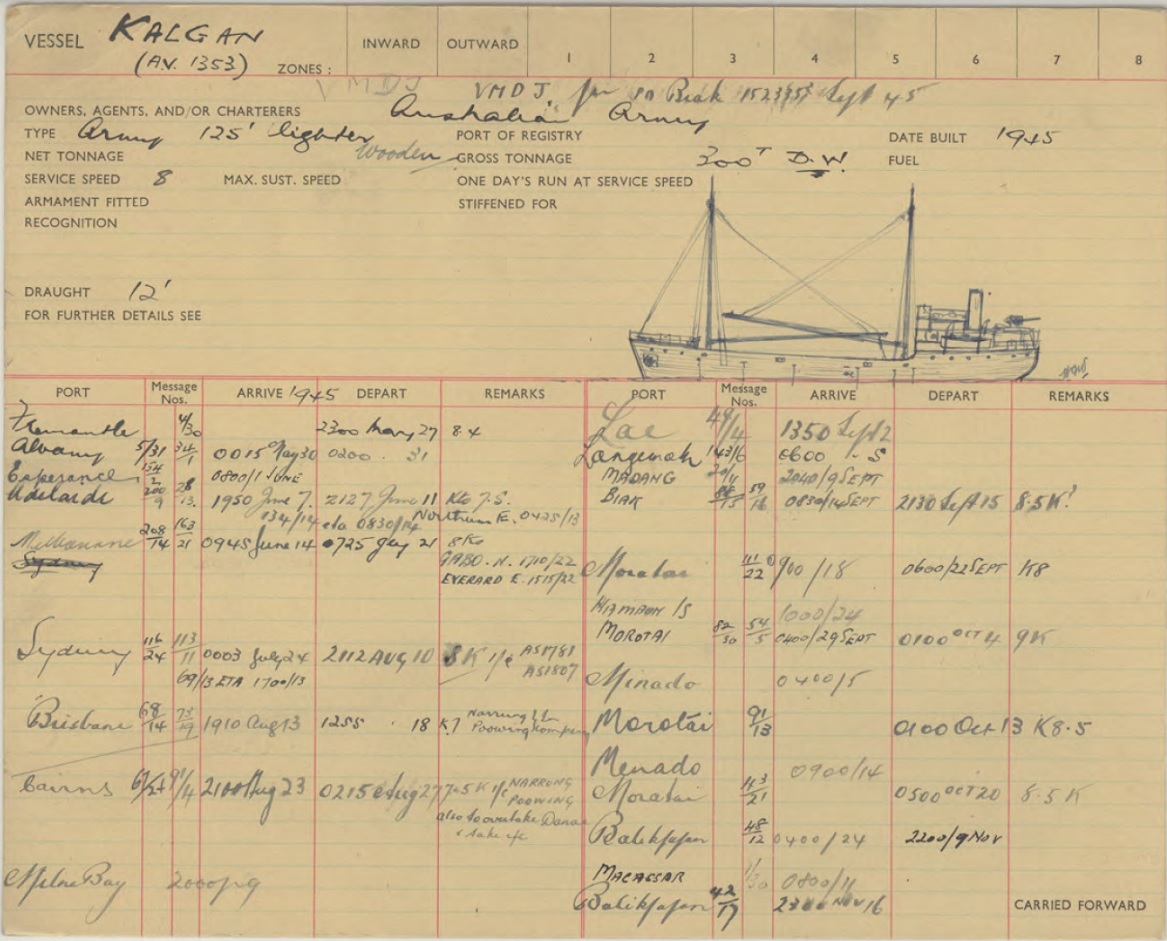 VESSEL KALGAN INWARD OUTWARD 1 2 3 4 5 6 7 8
(A.V. 1353) ZONES :
VMDJ VMDJ for Biak Sept 45
OWNERS, AGENTS, AND/OR CHARTERERS Australian Army
TYPE Army 125' lighter PORT OF REGISTRY DATE BUILT 1945
NET TONNAGE Wooden GROSS TONNAGE 300T D.W. FUEL
SERVICE SPEED 8 MAX. SUST. SPEED ONE DAY'S RUN AT SERVICE SPEED
ARMAMENT FITTED STIFFENED FOR
RECOGNITION
DRAUGHT 12'
FOR FURTHER DETAILS SEE
PORT Message Nos. ARRIVE 1945 DEPART REMARKS
Fremantle 4/30 2300 May 27 8.4
Albany 5/31 34/1 0015 May 30 0200 . 31
Esperance 154/2 0800/1 JUNE
Adelaide 200/9 28/13 1950 June 7. 2127 June 11 Kts 7.5.
134/14 eta 0830/14 Northum E. 0425/13
Melbourne 208/14 163/21 0945 June 14 0725 July 21 8 Ks
Sydney GABO . N. 1710/22
EVERARD E. 1515/22
Sydney 116/24 113/11 0003 July 24 2112 AUG 10 8K i/c AS1781
AS1807
69/13 ETA 1700/13
Brisbane 68/14 75/19 1910 Aug 13 1255 . 18 K7 Narrung
Poowing
Cairns 91/4 2100 Aug 23 0215 Aug 27 7.5K i/c NARRUNG
POOWONG
also to overtake Danae
& take i/c
Milne Bay
PORT Message Nos. ARRIVE DEPART REMARKS
Lae 49/4 1350 Sept 2
Langemak 143/6 0600 . 5
MADANG 20/11 2040/9 SEPT
BIAK 59/16 0830/14 SEPT 2130 Sept 15 8.5K?
Morotai 111/22 900/18 0600/22 SEPT K8
1000/24
MOROTAI 82/30 54/5 0400/29 SEPT 0100 OCT 4 9K
Minado 0400/5
Morotai 91/13 0100 Oct 13 K8.5
Menado 0900/14
Morotai 43/21 0500 OCT 20 8.5K
Balikpapan 48/12 0400/24 2200/9 NOV
MACASSAR 1/30 0800/11
Balikpapan 42/17 2300 NOV 16
CARRIED FORWARD